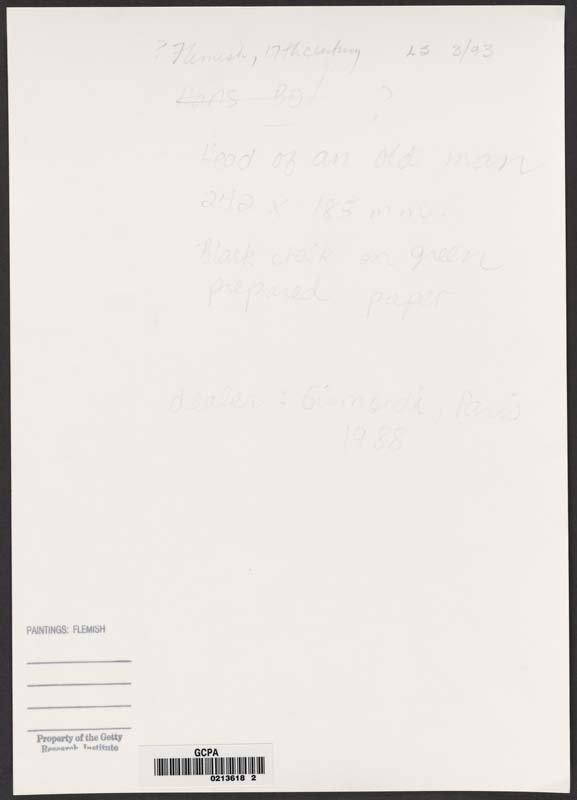 ? Flemish, 17th century LS 3/93
Hans Bol ?
Head of an old man
242 x 185 mm.
Black chalk on green
prepared paper
dealer : Paris
1988
PAINTINGS: FLEMISH
Property of the Getty
Research Institute
GCPA
0213618 2